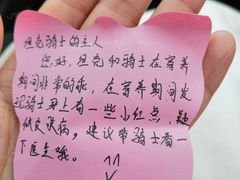 坦克骑士的主人
您好,坦克和骑士在寄养
期间非常的乖,在寄养期间发
现骑士身上有一些小红点,疑
似皮肤病,建议带骑士看一
下医生哦。